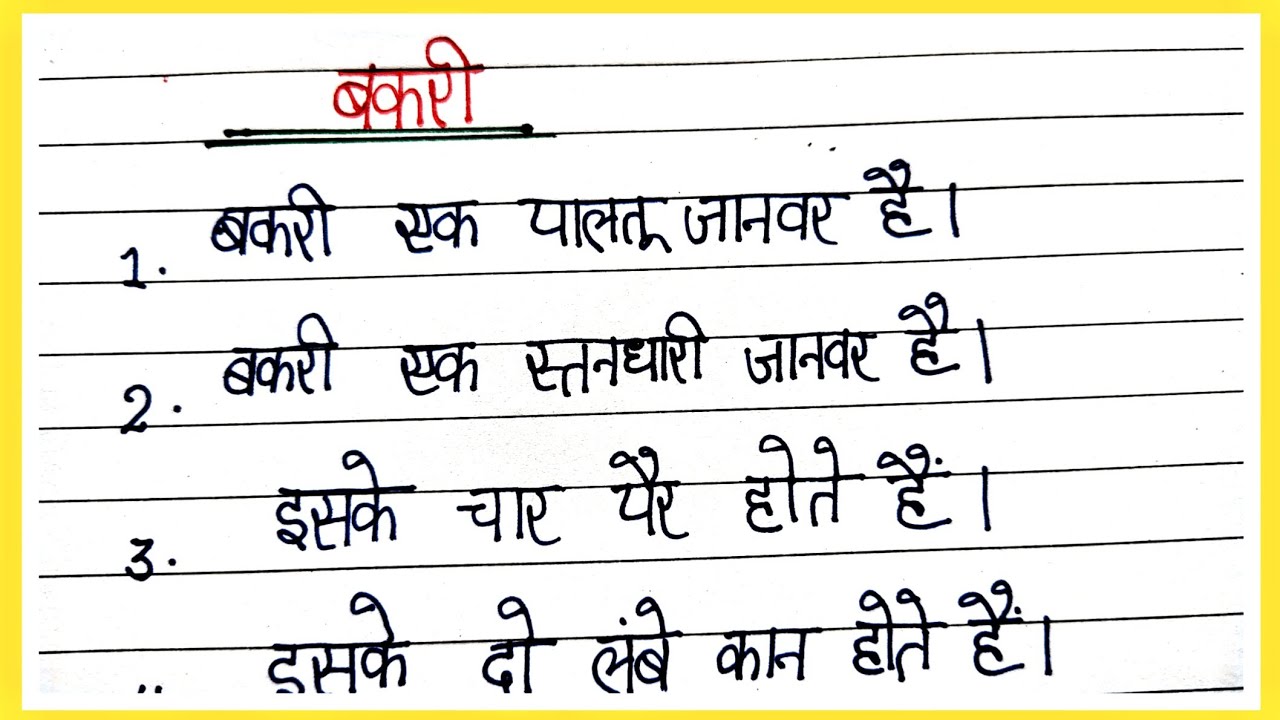 बकरी
1. बकरी एक पालतू जानवर है।
2. बकरी एक स्तनधारी जानवर है।
3. इसके चार पैर होते हैं।
इसके दो लंबे कान होते हैं।